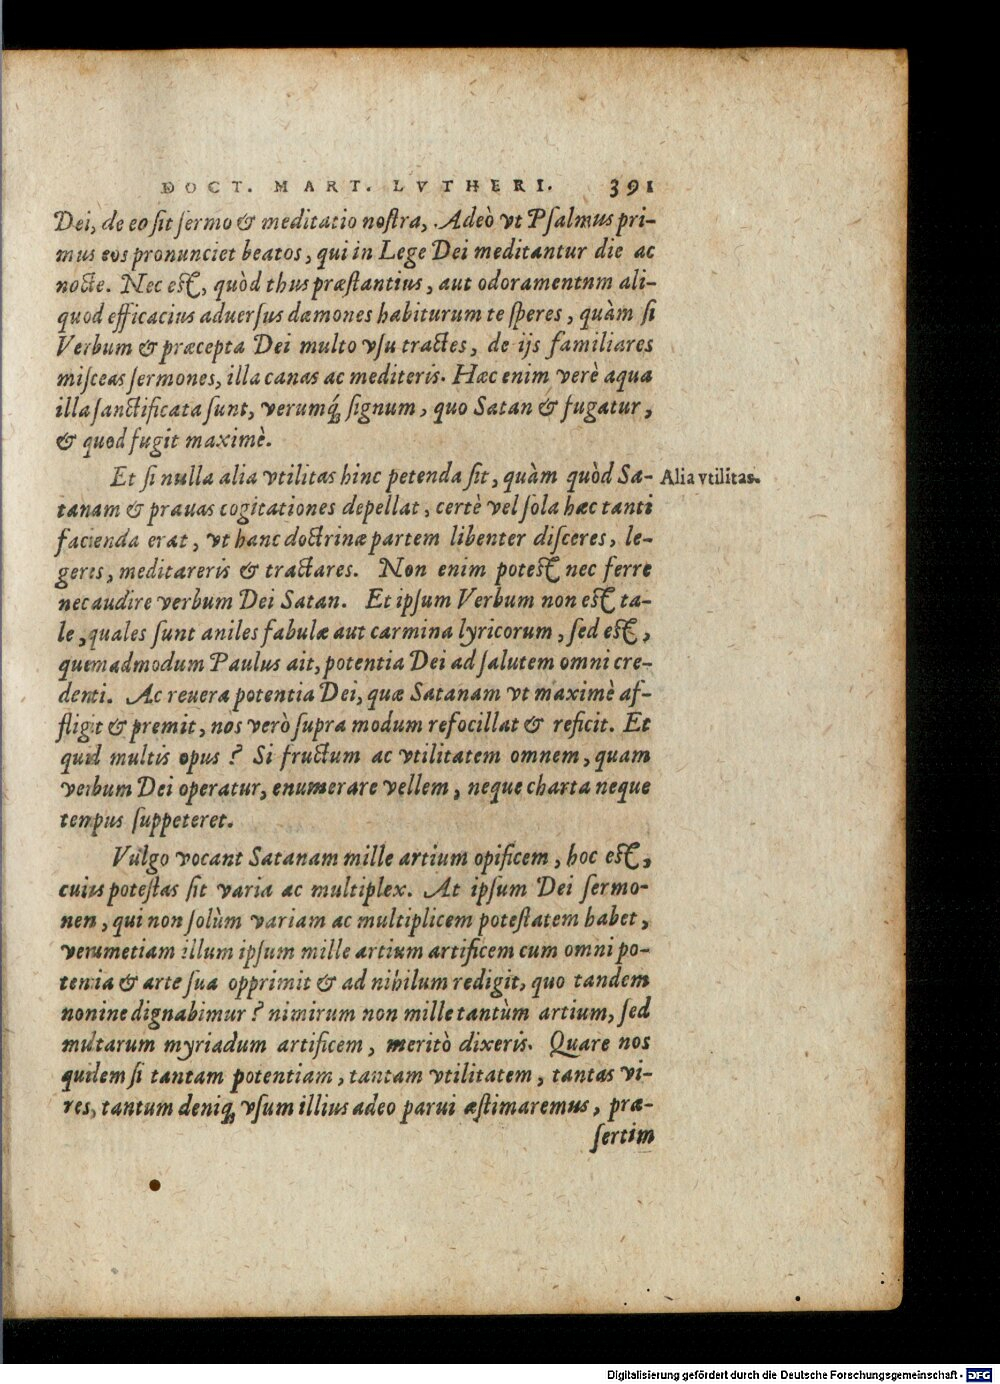 DOCT. MART. LVTHERI. 391
Dei, de eo sit sermo & meditatio nostra, Adeò vt Psalmus pri-
mus eos pronunciet beatos, qui in Lege Dei meditantur die ac
nocte. Nec est, quòd thus præstantius, aut odoramentnm ali-
quod efficacius aduersus dæmones habiturum te speres, quàm si
Verbum & præcepta Dei multo vsu tractes, de ijs familiares
misceas sermones, illa canas ac mediteris. Hæc enim verè aqua
illa sanctificata sunt, verumq́ signum, quo Satan & fugatur,
& quod fugit maximè.
Et si nulla alia vtilitas hinc petenda sit, quàm quòd Sa-
Alia vtilitas.
tanam & prauas cogitationes depellat, certè vel sola hæc tanti
facienda erat, vt hanc doctrinæ partem libenter disceres, le-
geres, meditareris & tractares. Non enim potest nec ferre
nec audire verbum Dei Satan. Et ipsum Verbum non est ta-
le, quales sunt aniles fabulæ aut carmina lyricorum, sed est,
quemadmodum Paulus ait, potentia Dei ad salutem omni cre-
denti. Ac reuera potentia Dei, quæ Satanam vt maximè af-
fligit & premit, nos verò supra modum refocillat & reficit. Et
quid multis opus? Si fructum ac vtilitatem omnem, quam
verbum Dei operatur, enumerare vellem, neque charta neque
tempus suppeteret.
Vulgo vocant Satanam mille artium opificem, hoc est,
cuius potestas sit varia ac multiplex. At ipsum Dei sermo-
nen, qui non solùm variam ac multiplicem potestatem habet,
verumetiam illum ipsum mille artium artificem cum omni po-
tentia & arte sua opprimit & ad nihilum redigit, quo tandem
nomine dignabimur? nimirum non mille tantùm artium, sed
multarum myriadum artificem, meritò dixeris. Quare nos
quidem si tantam potentiam, tantam vtilitatem, tantas vi-
res, tantum deniq vsum illius adeo parui æstimaremus, præ-
sertim
Digitalisierung gefördert durch die Deutsche Forschungsgemeinschaft - DFG